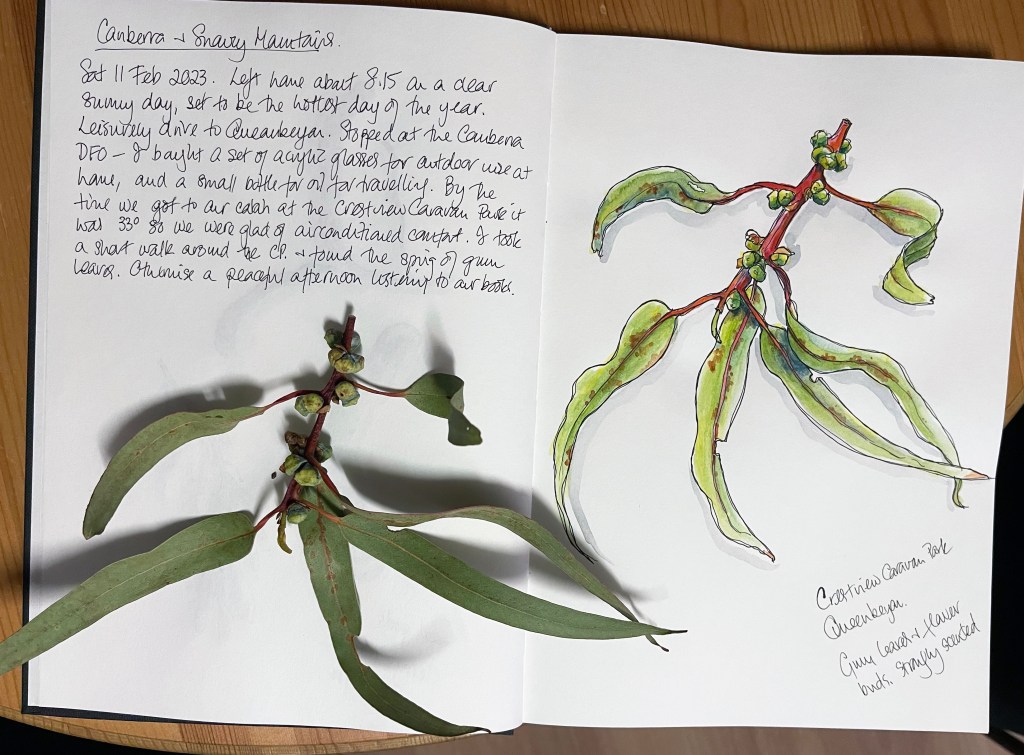 Canberra + Snowy Mountains.
Sat 11 Feb 2023. Left home about 8.15 on a clear
sunny day, set to be the hottest day of the year.
Leisurely drive to Queanbeyan. Stopped at the Canberra
DFO – I bought a set of acrylic glasses for outdoor use at
home, and a small bottle for oil for travelling. By the
time we got to our cabin at the Crestview Caravan Park it
was 33° so we were glad of airconditioned comfort. I took
a short walk around the CP. + found the sprig of gum
leaves. Otherwise a peaceful afternoon listening to our books.
Crestview Caravan Park
Queenbeyan.
Gum leaves + flower
buds. Strongly scented